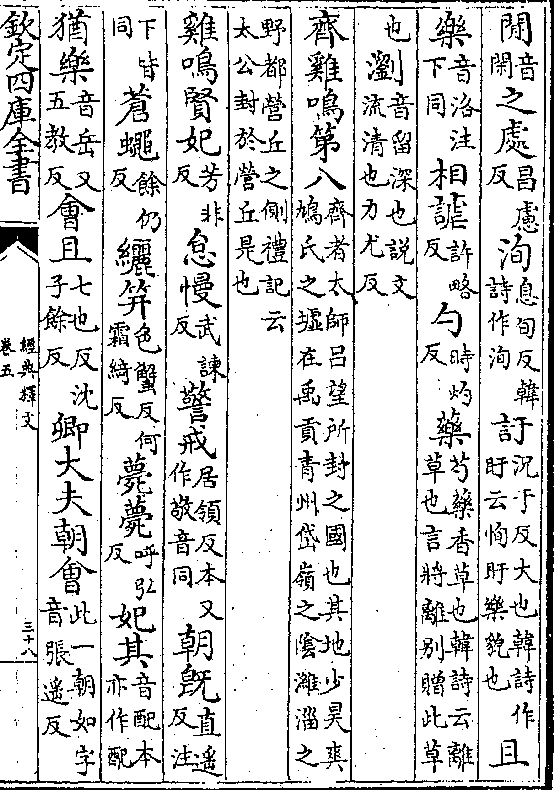 閒音閑之處昌慮反洵息旬反韓詩作洵訏況于反大也韓詩作盱云恂盱樂貌也且
樂音洛注下同相謔許略反勺時灼反藥芍藥香草也韓詩云離草也言將離别贈此草
也瀏音留深也説文流清也力尤反
齊雞鳴第八齊者太師吕望所封之國也其地少昊爽鳩氏之墟在禹貢青州岱嶺之隂濰淄之
野都營丘之側禮記云太公封於營丘是也
雞鳴賢妃芳非反怠慢武諫反警戒居領反本又作敬音同朝旣直遥反注
下皆同蒼蠅餘仍反纚笄色蟹反何霜綺反薨薨呼弘反妃其音配本亦作配
猶樂音岳又五教反會且七也反沈子餘反卿大夫朝會此一朝如字音張遥反
欽定四庫全書
經典釋文
卷五
三十八